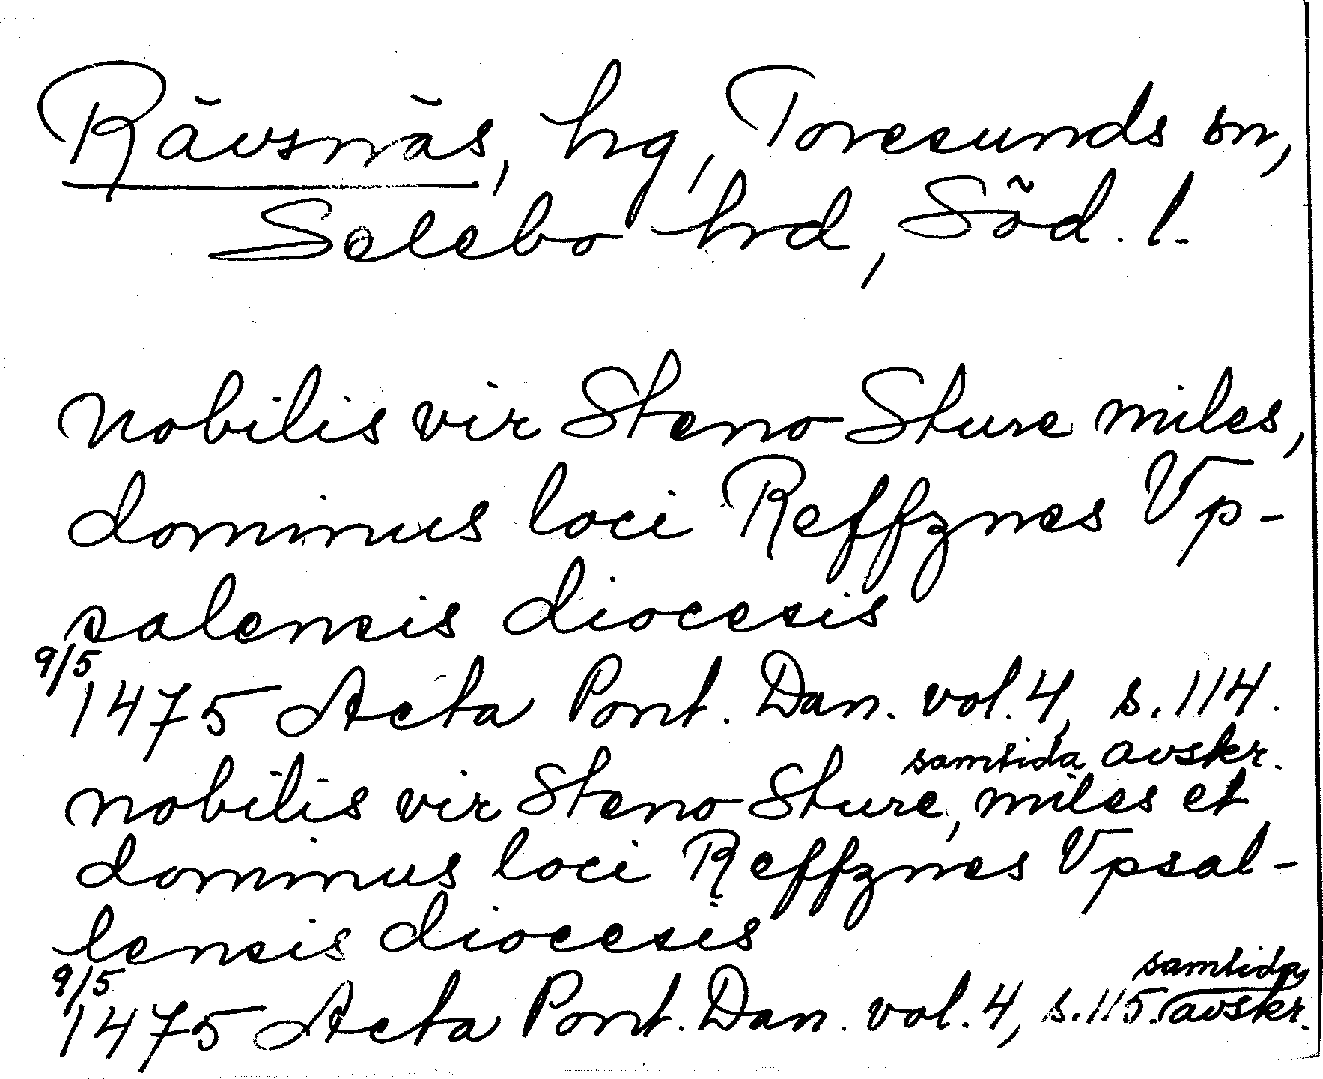 Rävsnäs, hg, Toresunds sn,
Selebo hrd, Söd. l.
nobilis vir Steno Sture miles,
dominus loci Reffznes Vp-
salensis diocesis
9/5
1475 Acta Pont. Dan. vol. 4, s. 114.
samtida avskr.
nobilis vir Steno Sture, miles et
dominus loci Reffznes Vpsal-
lensis diocesis
9/5
1475 Acta Pont. Dan. vol. 4, s. 115. samtida
avskr.